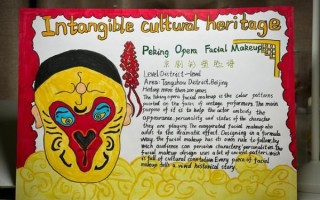 Intangible cultural heritage
Peking Opera Facial Makeup
京剧脸谱
Level: District-level
Area: Tongzhou District, Beijing
History: more than 200 years
The Peking opera facial makeup is the color patterns
painted on the faces of onstage performers. The main
purpose of it is to help the actor embody the
appearance, personality and status of the character
they are playing. The exaggerated facial makeup also
adds to the dramatic effect. Designing in a formula
way, the facial makeup has its own rule to follow, by
which audience can perceive characters' personalities. The
facial makeup design uses a bit of art and
is full of cultural connotation. Every piece of facial
makeup tells a vivid historical story.